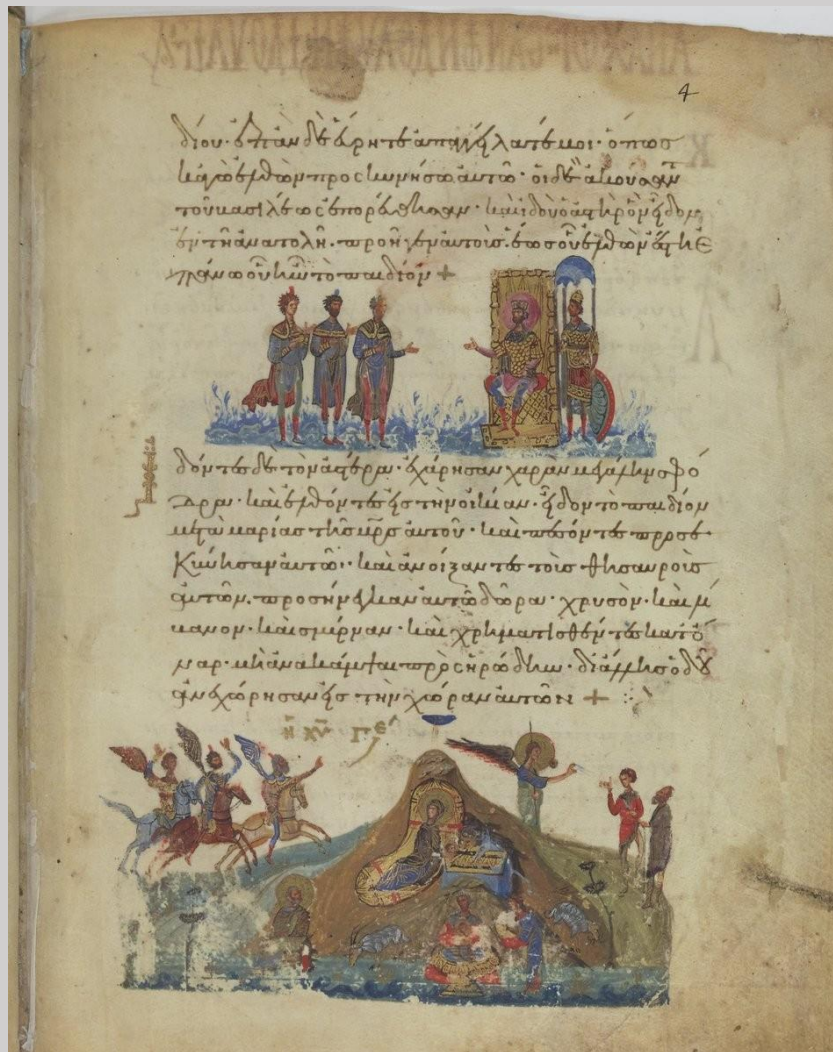 4
δίον· ἐπὰν δὲ εὕρητε ἀπαγγείλατέ μοι· ὅπως
κἀγὼ ἐλθὼν προσκυνήσω αὐτῶ· οἱ δὲ ἀκούσαντ
τοῦ βασιλέως ἐπορεύθησαν· καὶ ἰδοὺ ὁ ἀστὴρ ὃν εἶδον
ἐν τῆ ἀνατολῆ. προῆγεν αὐτοὺς. ἕως οὗ ἐλθὼν ἔστη ἐ
πάνω οὗ ἦν τὸ παιδίον +
Ἰδόντες δὲ τὸν ἀστέρα· ἐχάρησαν χαρὰν μεγάλην σφό
δρα· καὶ ἐλθόντες εἰς τὴν οἰκίαν· εἶδον τὸ παιδίον
μετὰ μαρίας τῆς μρς αὐτοῦ· καὶ πεσόντες προσε
κύνησαν αὐτῶ· καὶ ἀνοίξαντες τοὺς θησαυροὺς
αὐτῶν. προσήνεγκαν αὐτῶ δῶρα· χρυσὸν· καὶ λί
βανον· καὶ σμύρναν· καὶ χρηματισθέντες κατ' ὄ
ναρ· μὴ ἀνακάμψαι πρὸς ἡρώδην· δι' ἄλλης ὁδοῦ
ἀνεχώρησαν εἰς τὴν χώραν αὐτῶν +
ἡ χυ γε